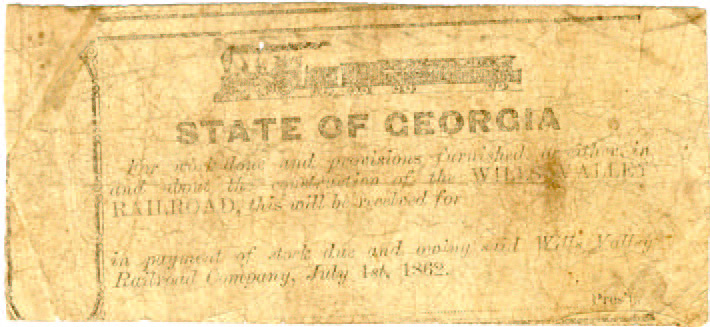 STATE OF GEORGIA
For work done and provisions furnished, or either, in
and about the construction of the WILLS VALLEY
RAILROAD, this will be received for
in payment of stock due and owing said Wills Valley
Railroad Company, July 1st, 1862.
Pres't.